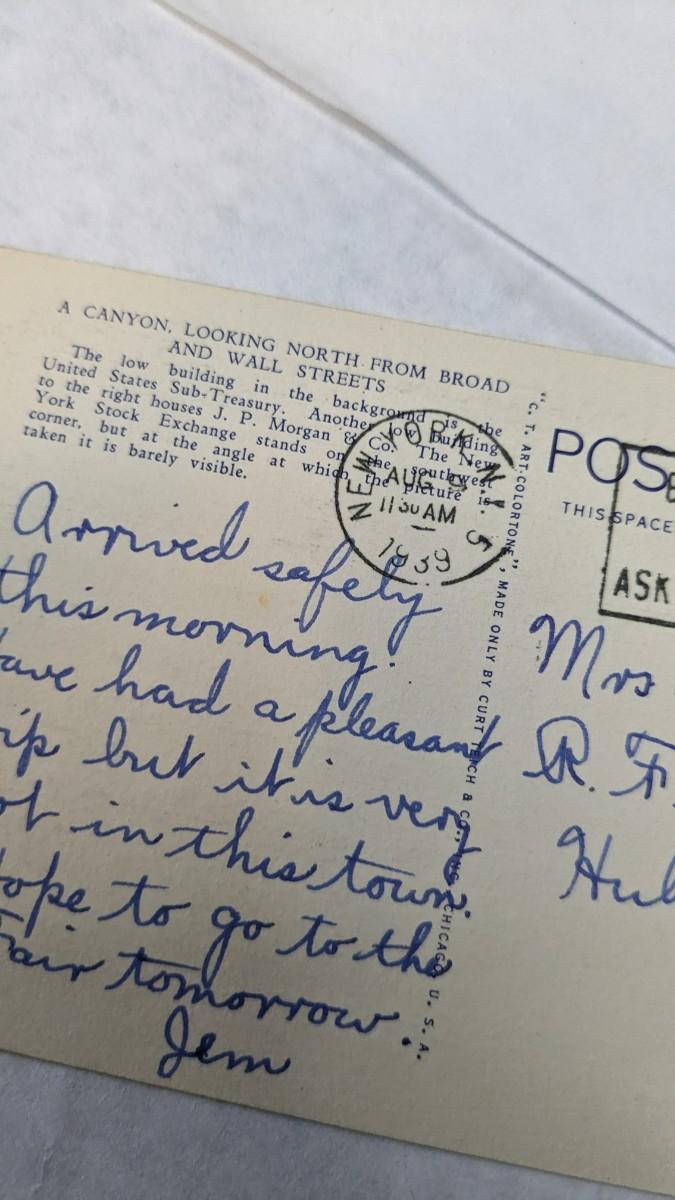 A CANYON, LOOKING NORTH FROM BROAD
AND WALL STREETS
The low building in the background is the
United States Sub-Treasury. Another low building
to the right houses J. P. Morgan & Co. The New
York Stock Exchange stands on the southwest
corner, but at the angle at which the picture is
taken it is barely visible.
NEW YORK, N.Y.
AUG
11 30 AM
1939
5
"C. T. ART-COLORTONE", MADE ONLY BY CURT TEICH & CO., INC., CHICAGO, U. S. A.
POS
THIS SPACE
ASK
Arrived safely
this morning.
ave had a pleasant
ip but it is very
ot in this town.
ope to go to the
Fair tomorrow.
Jem
Mrs
R. F.
Hul